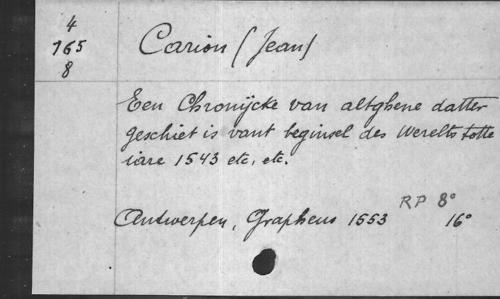 4
765
8
Carion (Jean)
Een Chronijcke van altghene datter
geschiet is vant beginsel des Werelts totte
iare 1543 etc, etc.
RP 8°
Antwerpen, Grapheus 1553 16°